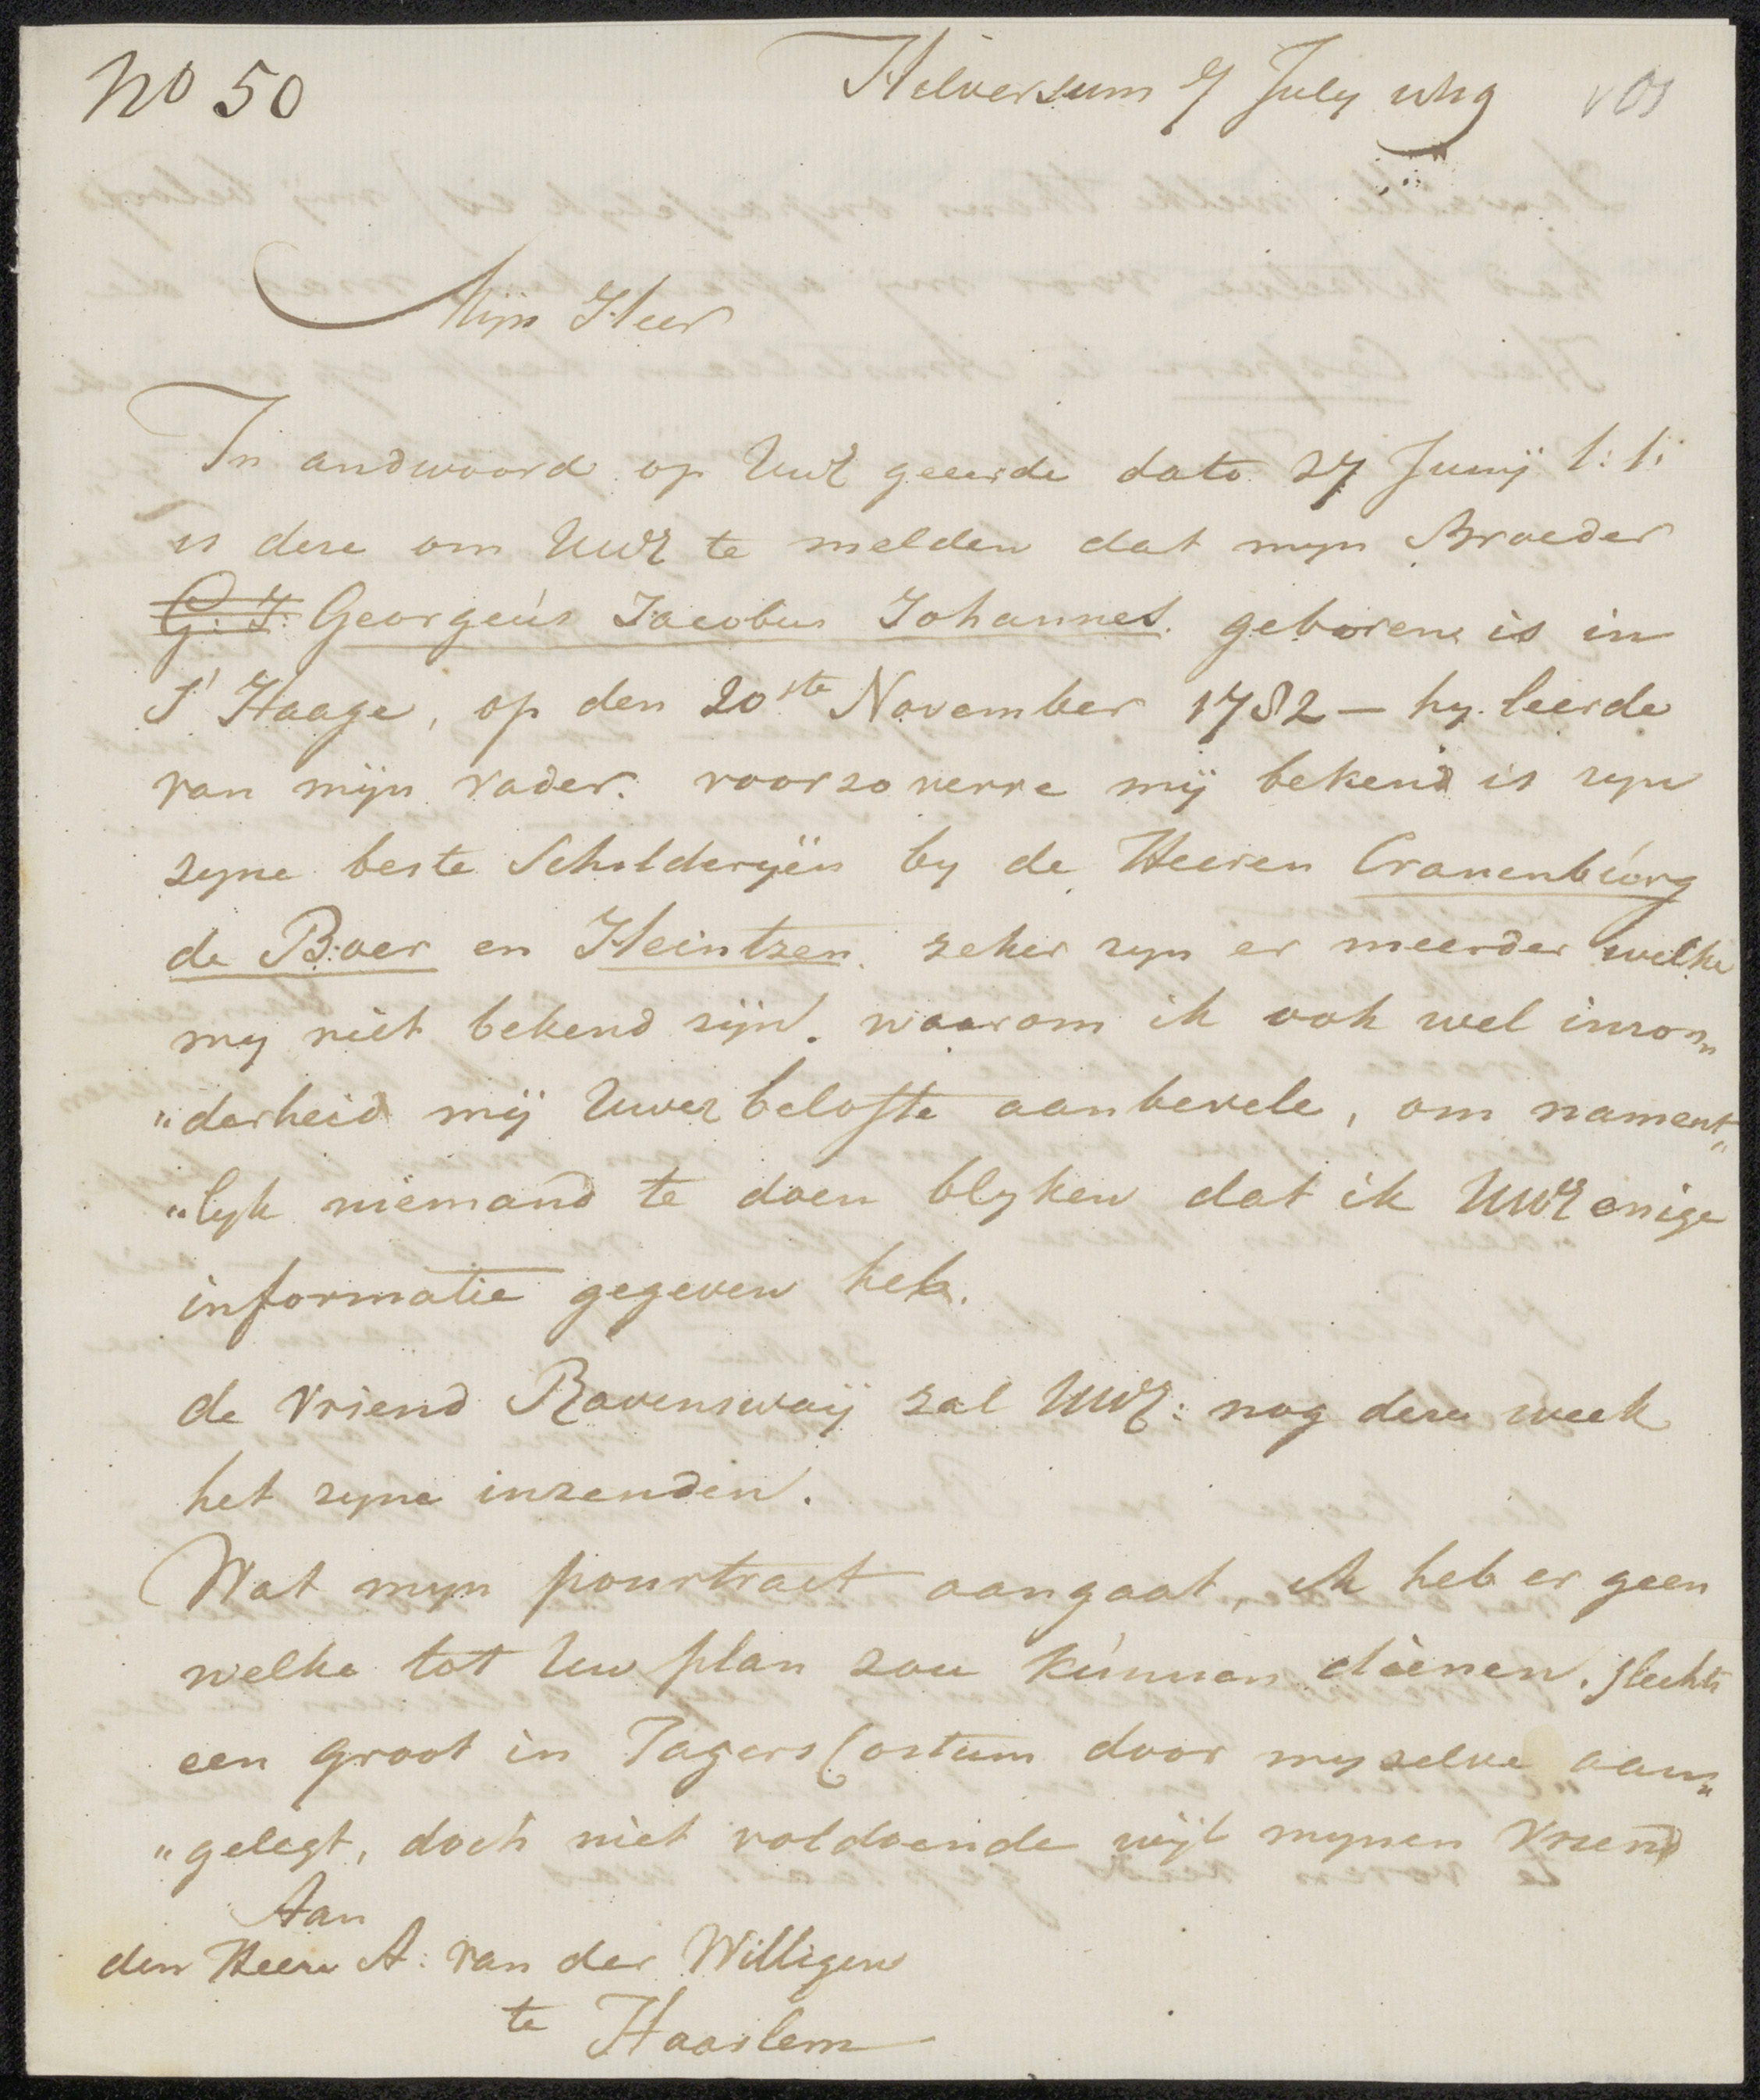 No 50
Hilversum 7 July
Mijn Heer
In andwoord op UwE geeerde dato 27 Junij l: l:
is dese om UwE te melden dat myn Broeder
G. J. Georgeús Jacobus Johannes. geboren is in
S' Haage, op den 20ste November 1782 — hy leerde
van mijn vader. voor so verre mij bekend is syn
zyne beste Schilderyën by de Heeren Cranenbúrg
de Boer en Heintzen. zeker syn er meerder welke
my niet bekend zijn. waarom ik ook wel inson„
„derheid mij Uwer belofte aanbevele, om nament„
„lyk niemand te doen blyken dat ik UwE enige
informatie gegeven heb.
de vriend Ravenswaij zal UwE: nog dese week
het zyne inzenden.
Wat myn pourtrait aangaat, ik heb er geen
welke tot Uw plan zou kúnnen dienen. slechts
een groot in Jagers Costum door my zelve aan„
„gelegt, doch niet voldoende wijl mynen vriend
Aan
den Heere A: van der Willigen
te Haarlem